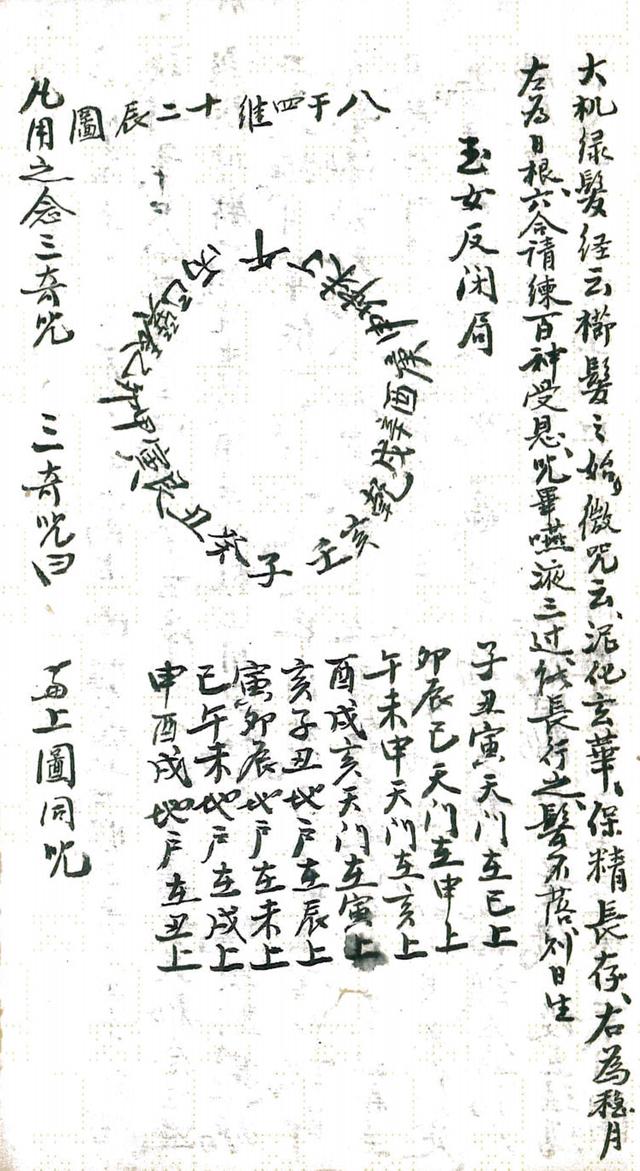 大机绿髮经云櫛髮之始,微咒云,泥化玄華,保精長存,右為隐月
左為日根,六合请練百神受恩,咒畢嚥液三过,能長行之,髮不落则日生
玉女反闭局
八干四维十二辰圖
午丁未坤申庚酉辛戌乾亥壬子癸丑艮寅甲卯乙辰巽巳丙
子丑寅天门在巳上
卯辰巳天门在申上
午未申天门在亥上
酉戌亥天门在寅上
亥子丑地户在辰上
寅卯辰地户在未上
巳午未地户在戌上
申酉戌地户在丑上
凡用之念三奇咒 三奇咒曰 与上圖同咒